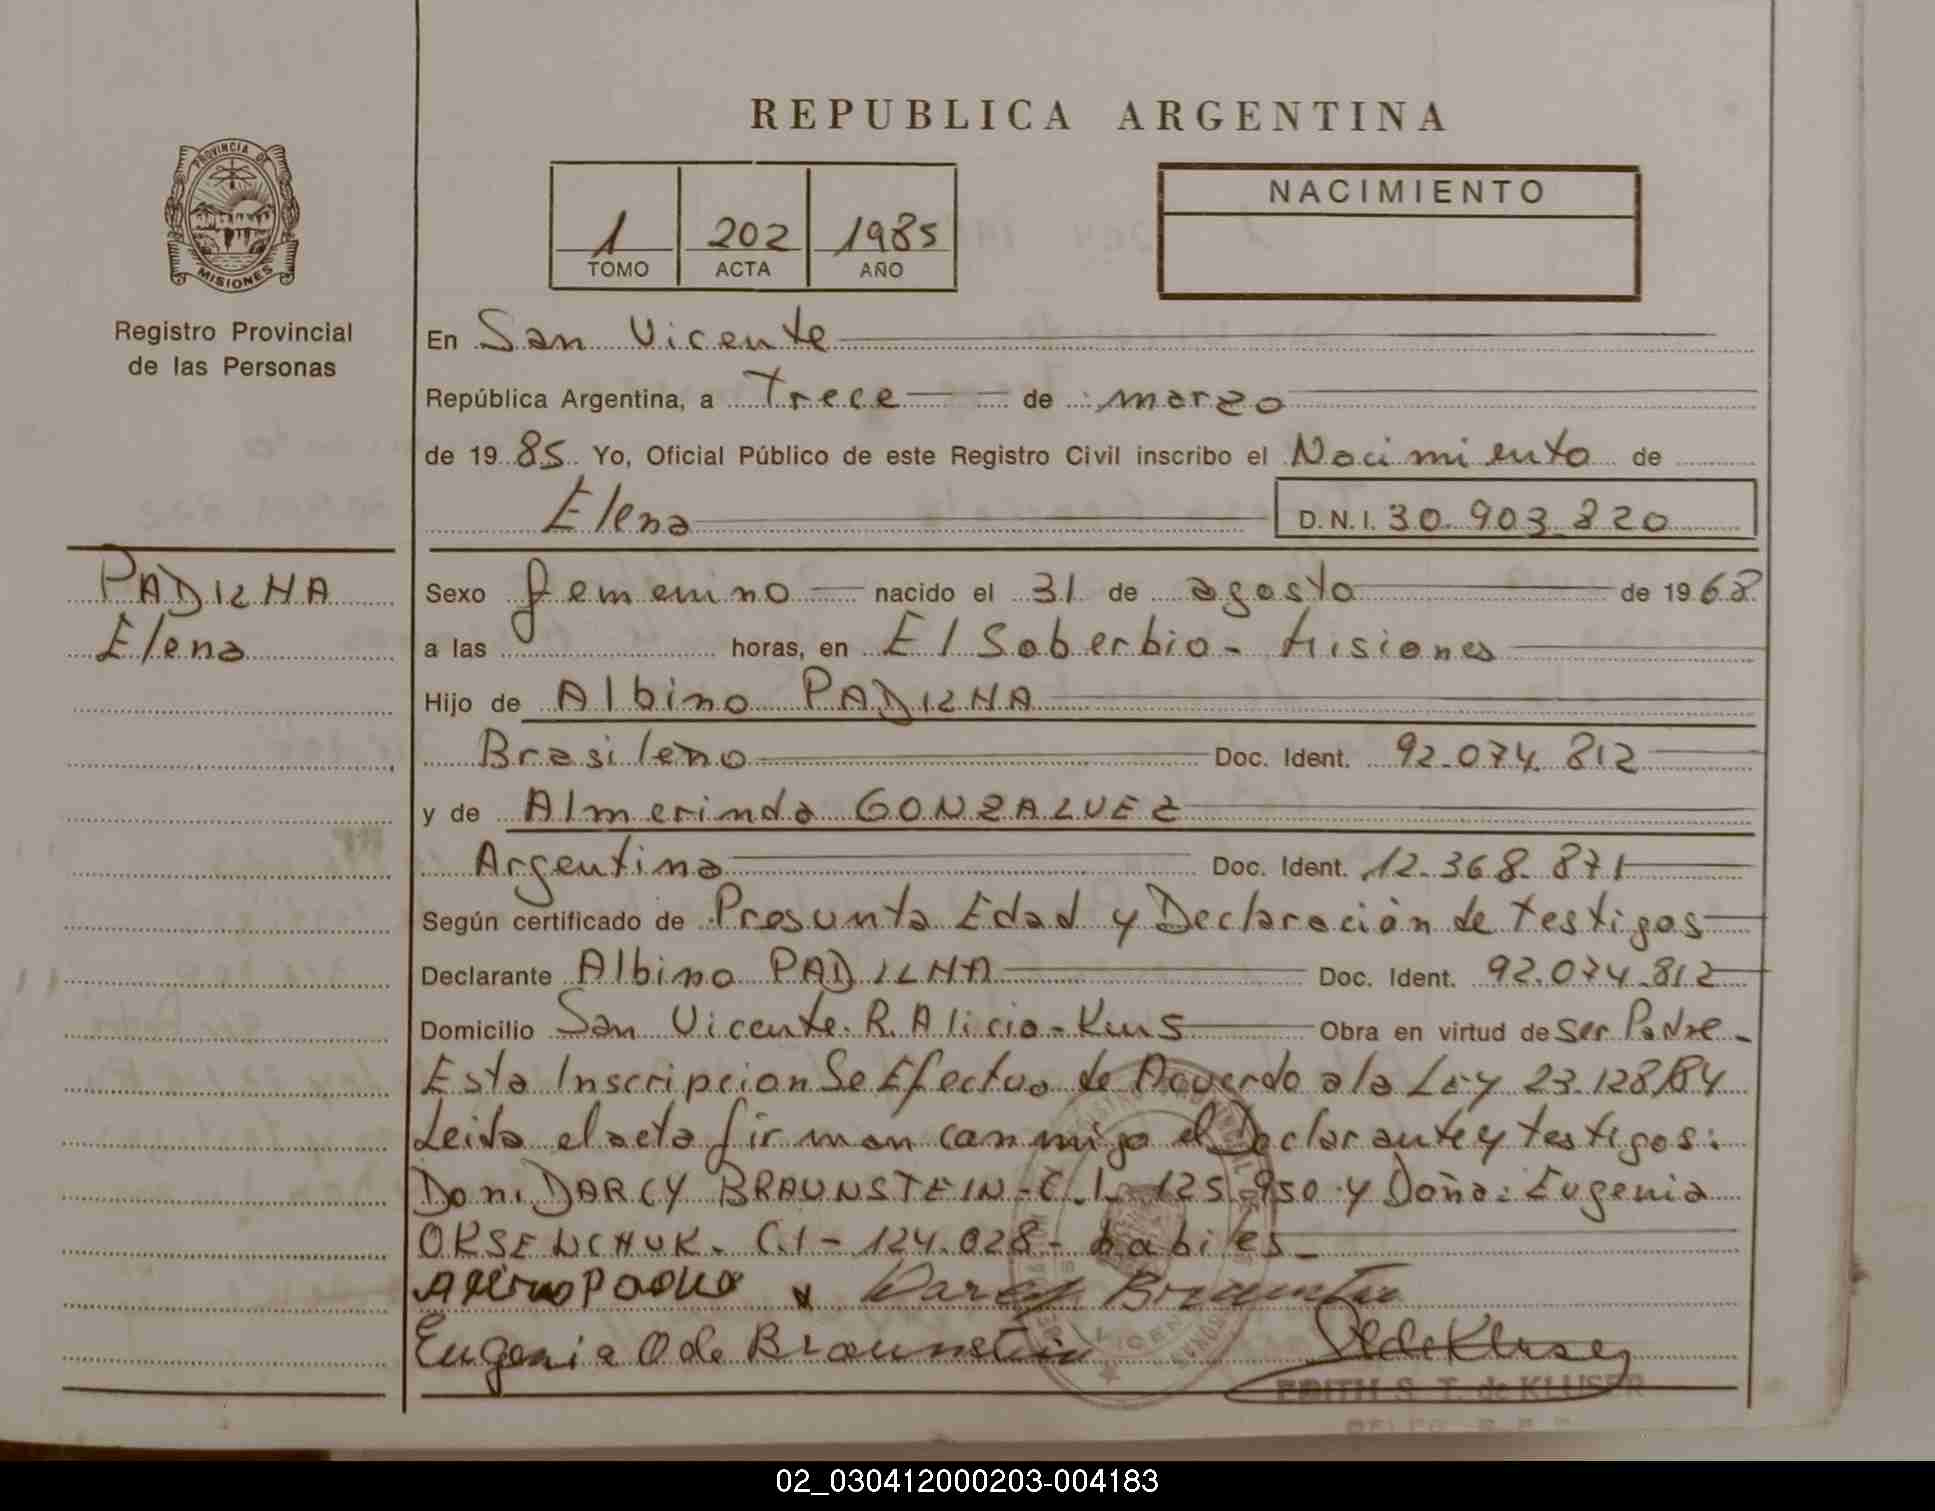 REPUBLICA ARGENTINA
PROVINCIA DE
MISIONES
Registro Provincial
de las Personas
1 202 1985
TOMO ACTA AÑO
NACIMIENTO
En San Vicente
República Argentina, a Trece de marzo
de 1985 Yo, Oficial Público de este Registro Civil inscribo el Nacimiento de
Elena D.N.I. 30.903.820
PADILHA
Elena
Sexo femenino nacido el 31 de agosto de 1968
a las horas, en El Soberbio - Misiones
Hijo de Albino PADILHA
Brasileño Doc. Ident. 92.074.812
y de Almerinda GONZALVEZ
Argentina Doc. Ident. 12.368.871
Según certificado de Presunta Edad y Declaración de testigos
Declarante Albino PADILHA Doc. Ident. 92.074.812
Domicilio San Vicente. R. Alicia - Obra en virtud de ser Padre -
Esta Inscripcion Se Efectua de Acuerdo a la Ley 23.128/84
Leida el acta firman conmigo el Declarante y testigos:
Don: DARCY BRAUNSTEIN - C.I. 125.950 y Doña: Eugenia
OKSENCHUK. C.I - 124.028 - habiles -
Eugenia O de Braunstein
EDITH S. T. de KLUSER
02_030412000203-004183